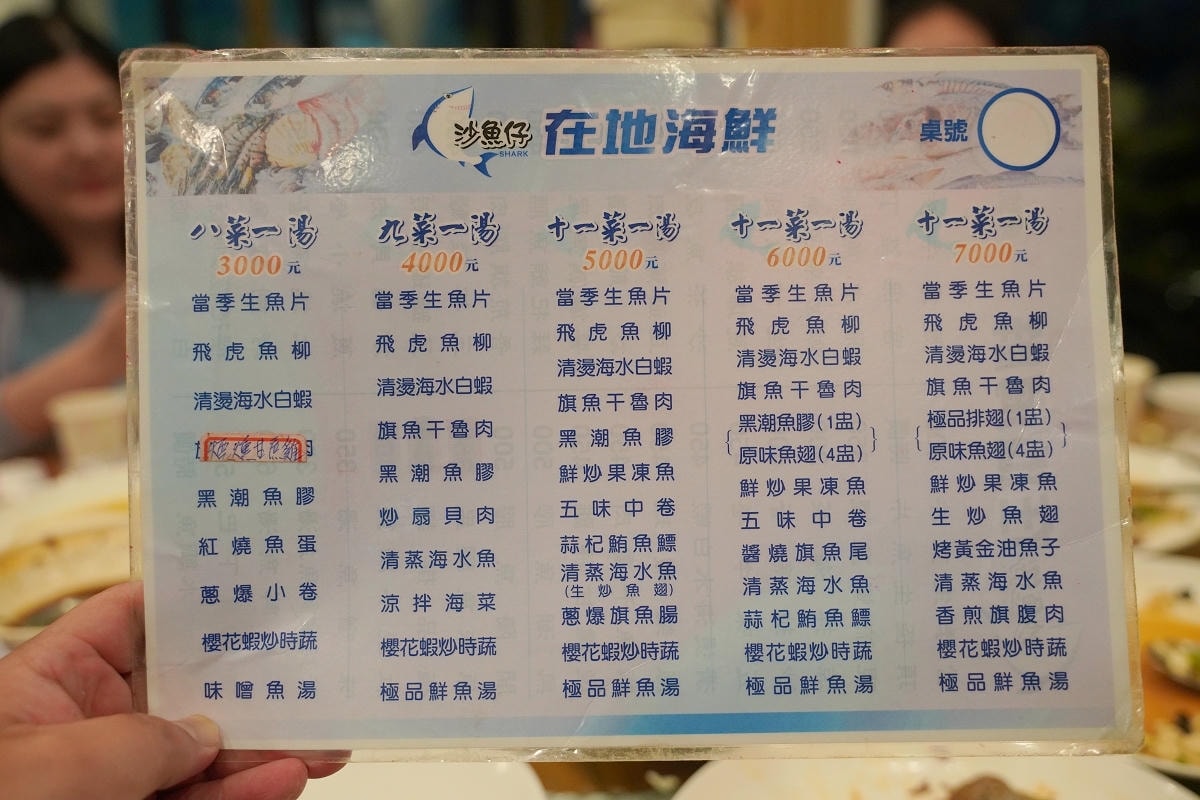 沙魚仔
SHARK
在地海鮮
桌號
八菜一湯
3000元
當季生魚片
飛虎魚柳
清燙海水白蝦
肉
黑潮魚膠
紅燒魚蛋
蔥爆小卷
櫻花蝦炒時蔬
味噌魚湯
九菜一湯
4000元
當季生魚片
飛虎魚柳
清燙海水白蝦
旗魚干魯肉
黑潮魚膠
炒扇貝肉
清蒸海水魚
涼拌海菜
櫻花蝦炒時蔬
極品鮮魚湯
十一菜一湯
5000元
當季生魚片
飛虎魚柳
清燙海水白蝦
旗魚干魯肉
黑潮魚膠
鮮炒果凍魚
五味中卷
蒜杞鮪魚鰾
清蒸海水魚
(生炒魚翅)
蔥爆旗魚腸
櫻花蝦炒時蔬
極品鮮魚湯
十一菜一湯
6000元
當季生魚片
飛虎魚柳
清燙海水白蝦
旗魚干魯肉
黑潮魚膠(1盅)
原味魚翅(4盅)
鮮炒果凍魚
五味中卷
醬燒旗魚尾
清蒸海水魚
蒜杞鮪魚鰾
櫻花蝦炒時蔬
極品鮮魚湯
十一菜一湯
7000元
當季生魚片
飛虎魚柳
清燙海水白蝦
旗魚干魯肉
極品排翅(1盅)
原味魚翅(4盅)
鮮炒果凍魚
生炒魚翅
烤黃金油魚子
清蒸海水魚
香煎旗腹肉
櫻花蝦炒時蔬
極品鮮魚湯